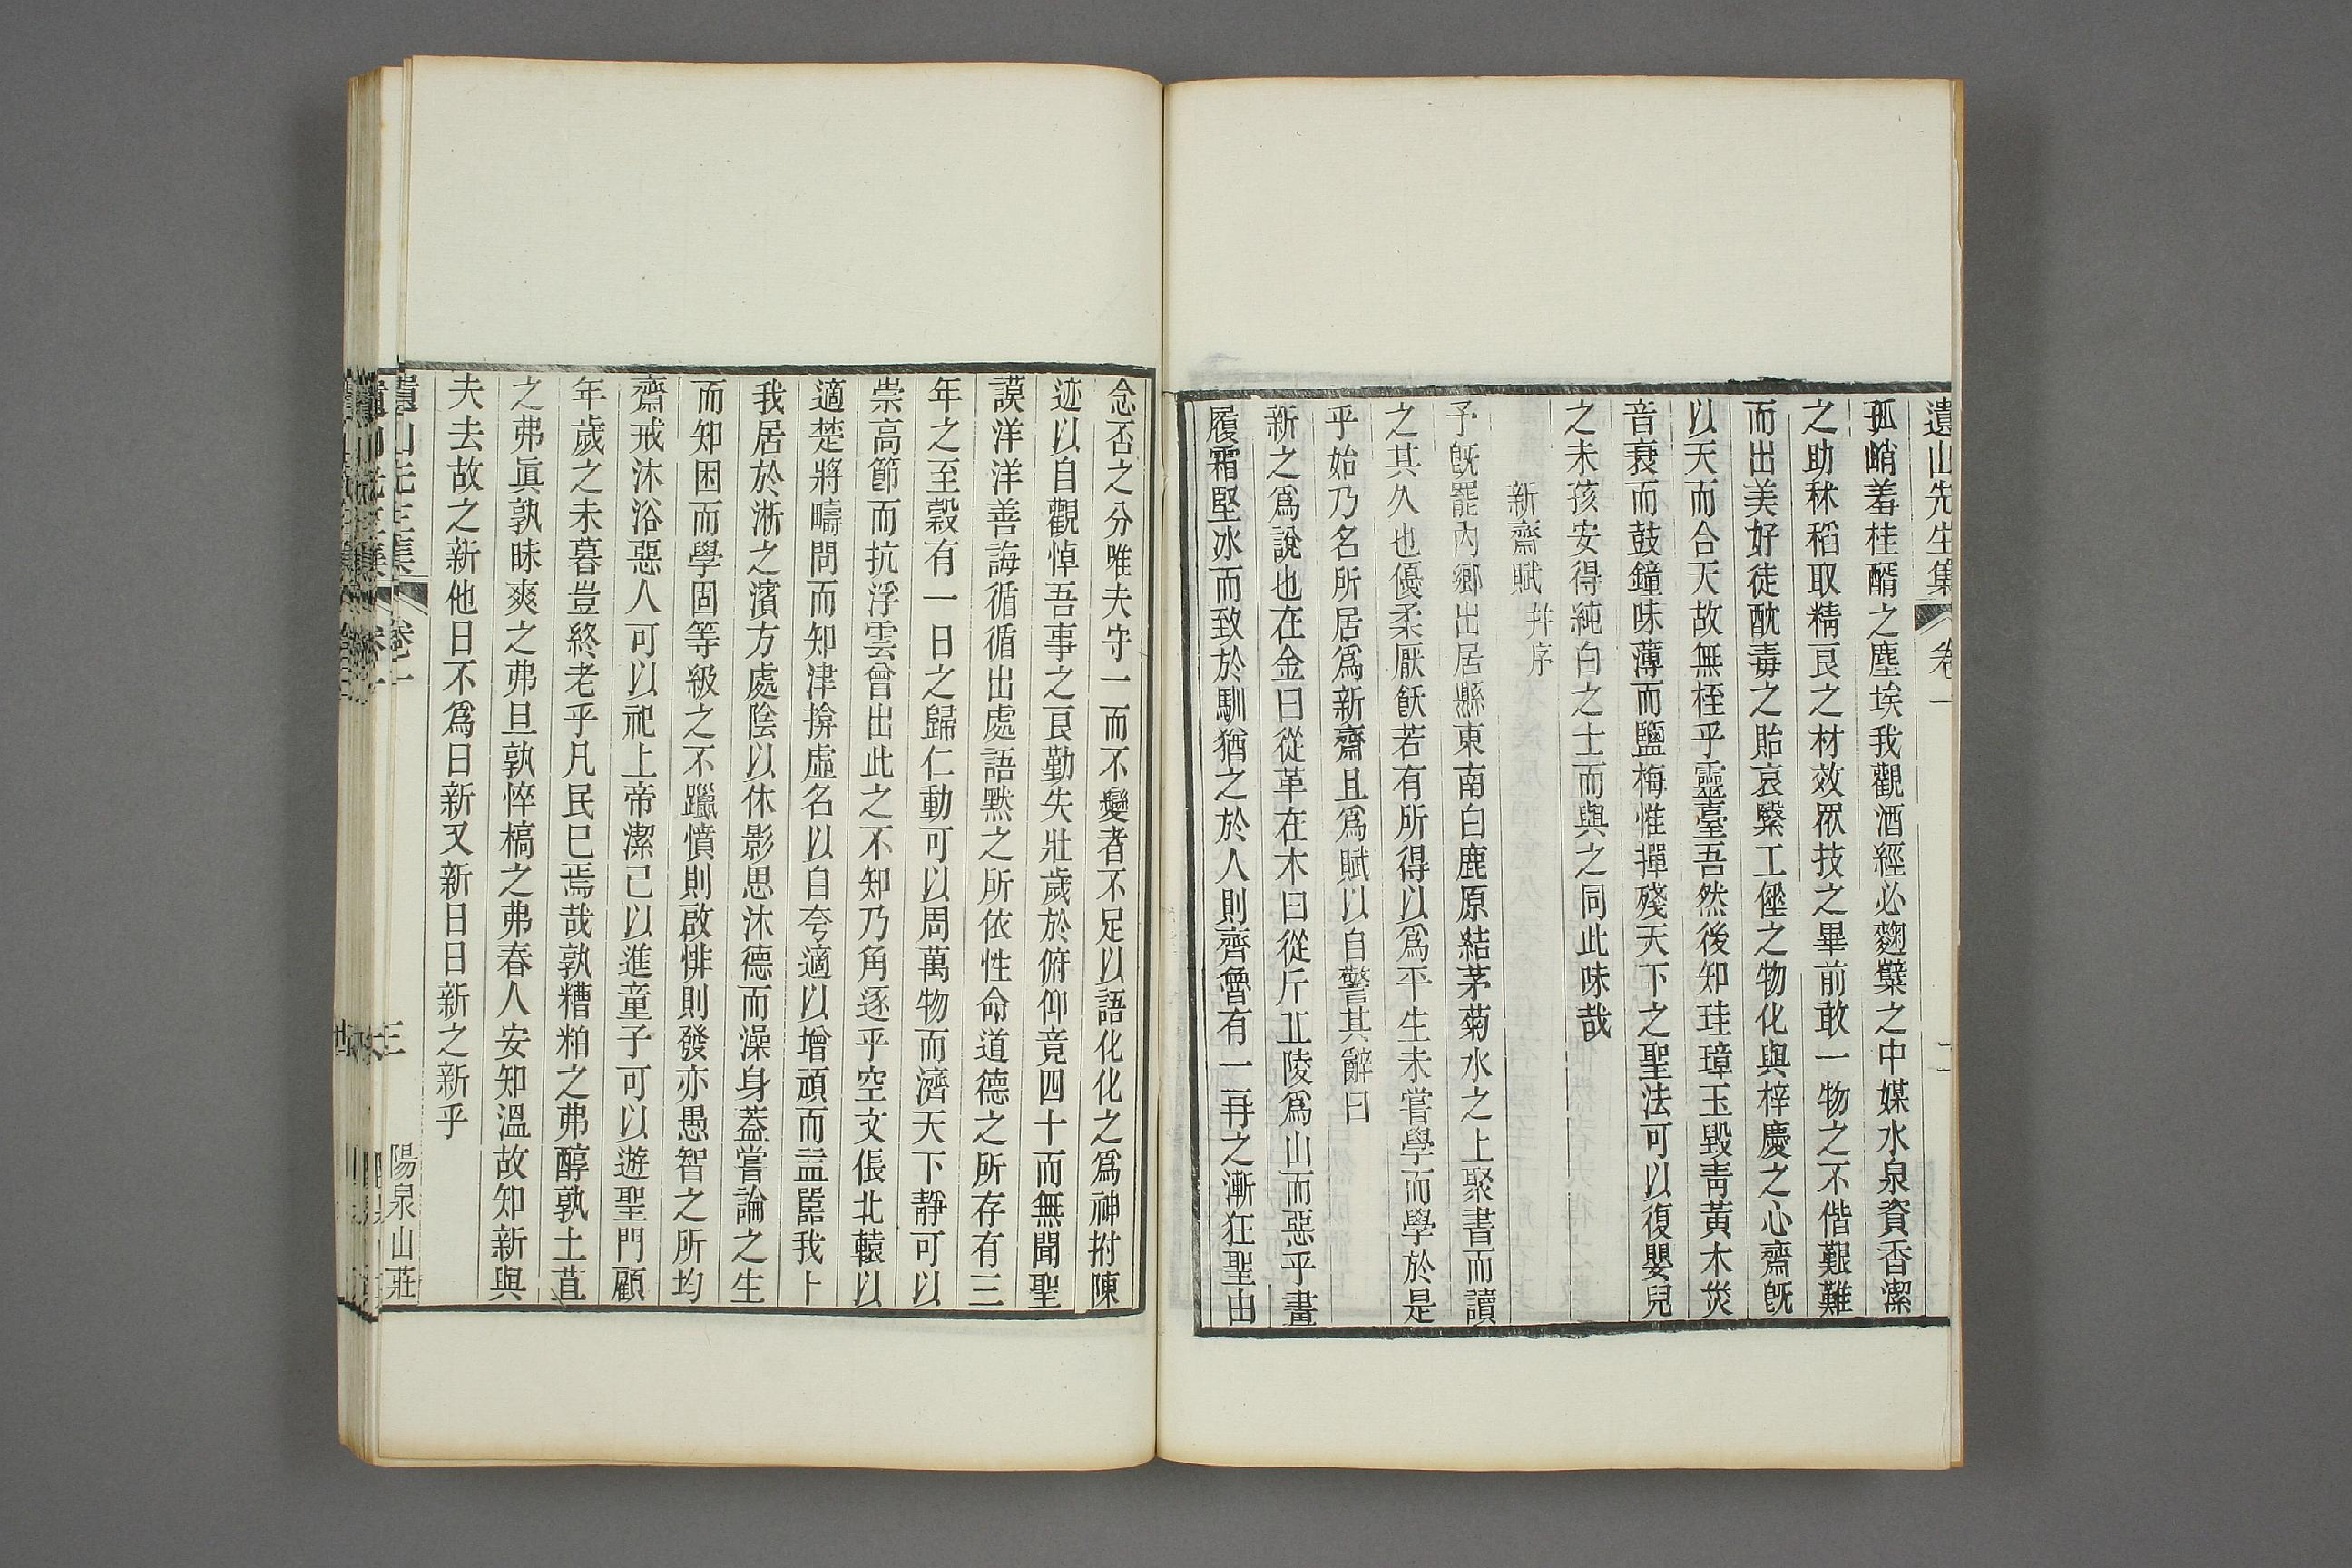 遺山先生集 卷一 二
孤峭羞桂醑之塵埃我觀酒經必麴糱之中媒水泉資香潔
之助秫稻取精良之材效眾技之畢前敢一物之不偕艱難
而出美好徒酖毒之貽哀繄工倕之物化與梓慶之心齋旣
以天而合天故無桎乎靈臺吾然後知珪璋玉毀靑黃木烖
音衰而鼓鐘味薄而鹽梅惟撣殘天下之聖法可以復嬰兒
之未孩安得純白之士而與之同此味哉
新齋賦 幷序
予旣罷內鄉出居縣東南白鹿原結茅菊水之上聚書而讀
之其久也優柔厭飫若有所得以爲平生未嘗學而學於是
乎始乃名所居爲新齋且爲賦以自警其辭曰
新之爲說也在金曰從革在木曰從斤丠陵爲山而惡乎畫
履霜堅冰而致於馴猶之於人則齊魯有一再之漸狂聖由
念否之分唯夫守一而不變者不足以語化化之爲神拊陳
迹以自觀悼吾事之良勤失壯歲於俯仰竟四十而無聞聖
謨洋洋善誨循循出處語默之所依性命道德之所存有三
年之至穀有一日之歸仁動可以周萬物而濟天下靜可以
崇高節而抗浮雲曾出此之不知乃角逐乎空文倀北轅以
適楚將疇問而知津揜虛名以自夸適以增頑而益嚚我卜
我居於淅之濱方處陰以休影思沐德而澡身蓋嘗論之生
而知困而學固等級之不躐憤則啟悱則發亦愚智之所均
齋戒沐浴惡人可以祀上帝潔己以進童子可以遊聖門顧
年歲之未暮豈終老乎凡民已焉哉孰糟粕之弗醇孰土苴
之弗眞孰昧爽之弗旦孰悴槁之弗春人安知溫故知新與
夫去故之新他日不爲日新又新日日新之新乎
遺山先生集 卷一 三 陽泉山莊